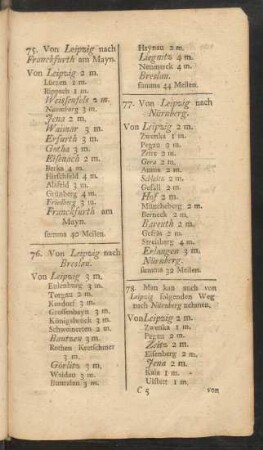 75. Von Leipzig nach
Franckfurth am Mayn.
Von Leipzig 2 m.
Lützen 1 m.
Rippach 1 m.
Weissenfels 2 m.
Naumburg 3 m.
Jena 2 m.
Weimar 3 m.
Erfurth 3 m.
Gotha 3 m.
Eisenach 2 m.
Berka 4 m.
Hirschfeld 4 m.
Alsfeld 3 m.
Grünberg 4 m.
Friedberg 3 m.
Franckfurth am
Mayn.
summa 40 Meilen.
76. Von Leipzig nach
Breslau.
Von Leipzig 3 m.
Eulenburg 3 m.
Torgau 2 m.
Kosdorf 3 m.
Grossenhayn 3 m.
Königsbruck 3 m.
Schweinerden 2 m.
Bautzen 3 m.
Rothen Kretschmer
3 m.
Görlitz 3 m.
Waldau 3 m.
Buntzlau 3 m.
Haynau 2 m.
Liegnitz 4 m.
Neumarck 4 m.
Breslau.
summa 44 Meilen.
77. Von Leipzig nach
Nürnberg.
Von Leipzig 2 m.
Zwenka 1 m.
Pegau 2 m.
Zeitz 2 m.
Gera 2 m.
Auma 2 m.
Schleitz 2 m.
Gefell 2 m.
Hof 2 m.
Müncheberg 2 m.
Berneck 2 m.
Bareuth 2 m.
Gefräs 2 m.
Streitberg 4 m.
Erlangen 3 m.
Nürnberg.
summa 32 Meilen.
78. Man kan auch von
Leipzig folgenden Weg
nach Nürnberg nehmen.
Von Leipzig 2 m.
Zwenka 1 m.
Pegau 2 m.
Zeitz 2 m.
Eisenberg 2 m.
Jena 2 m.
Kala 1 m.
Uhlstet 1 m.
C 5 von